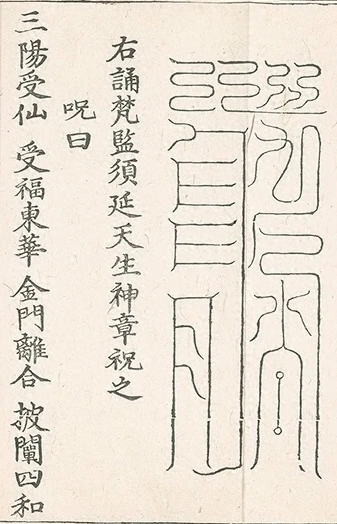 右誦梵監須延天生神章祝之
呪曰
三陽受仙 受福東華 金門離合 披闡四和